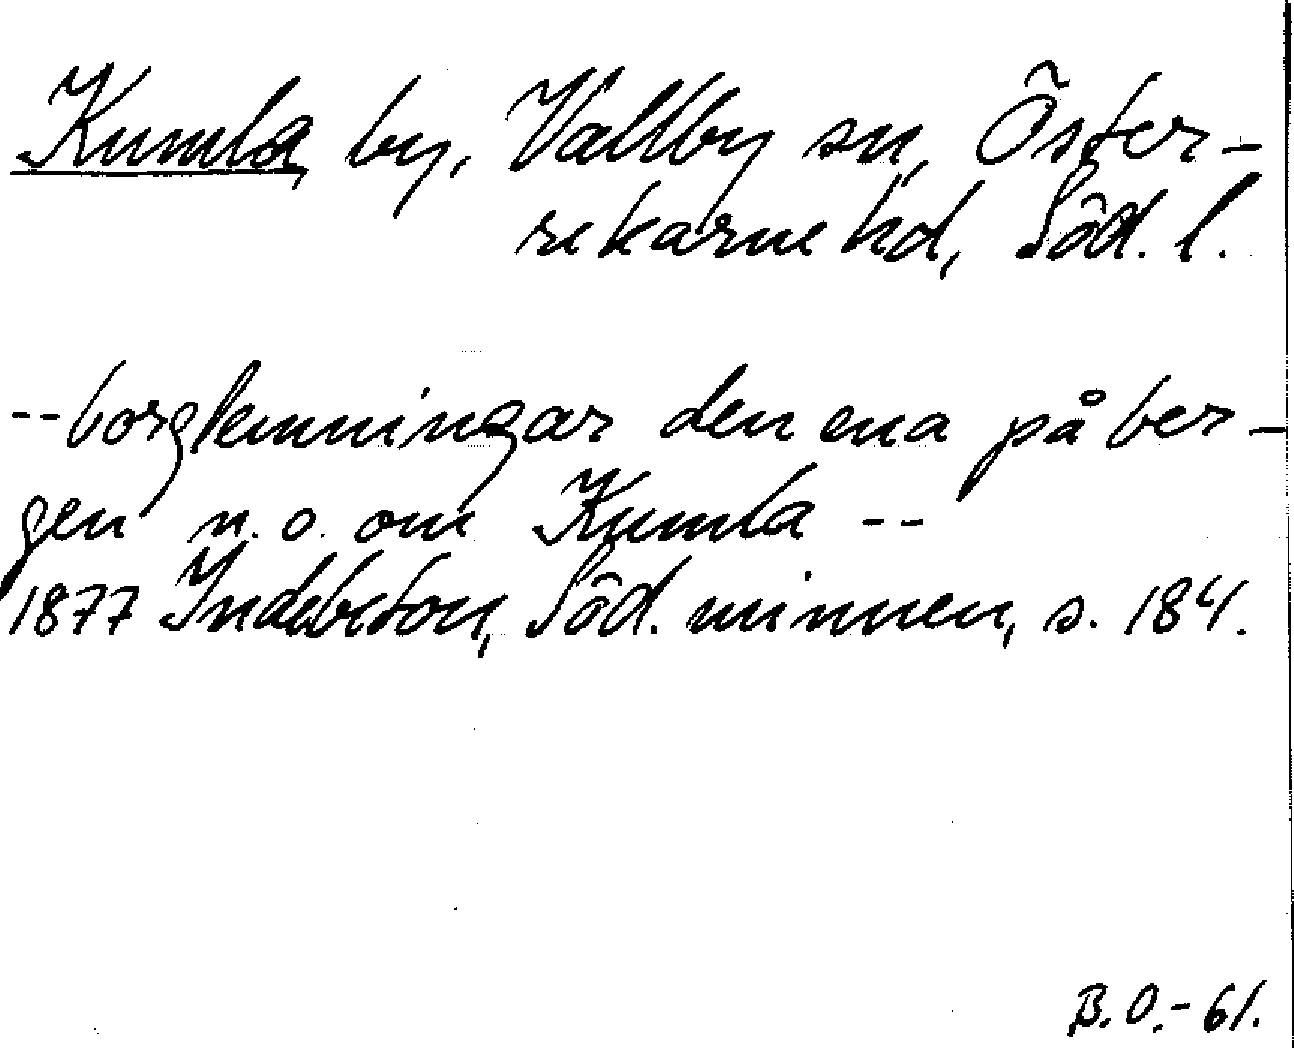 Kumla, by, Vallby sn, Öster-
rekarne hd, Söd. l.
--borglemningar den ena på ber-
gen n.o. om Kumla --
1877 Indebetou, Söd. minnen, s. 184.
B.O.-61.